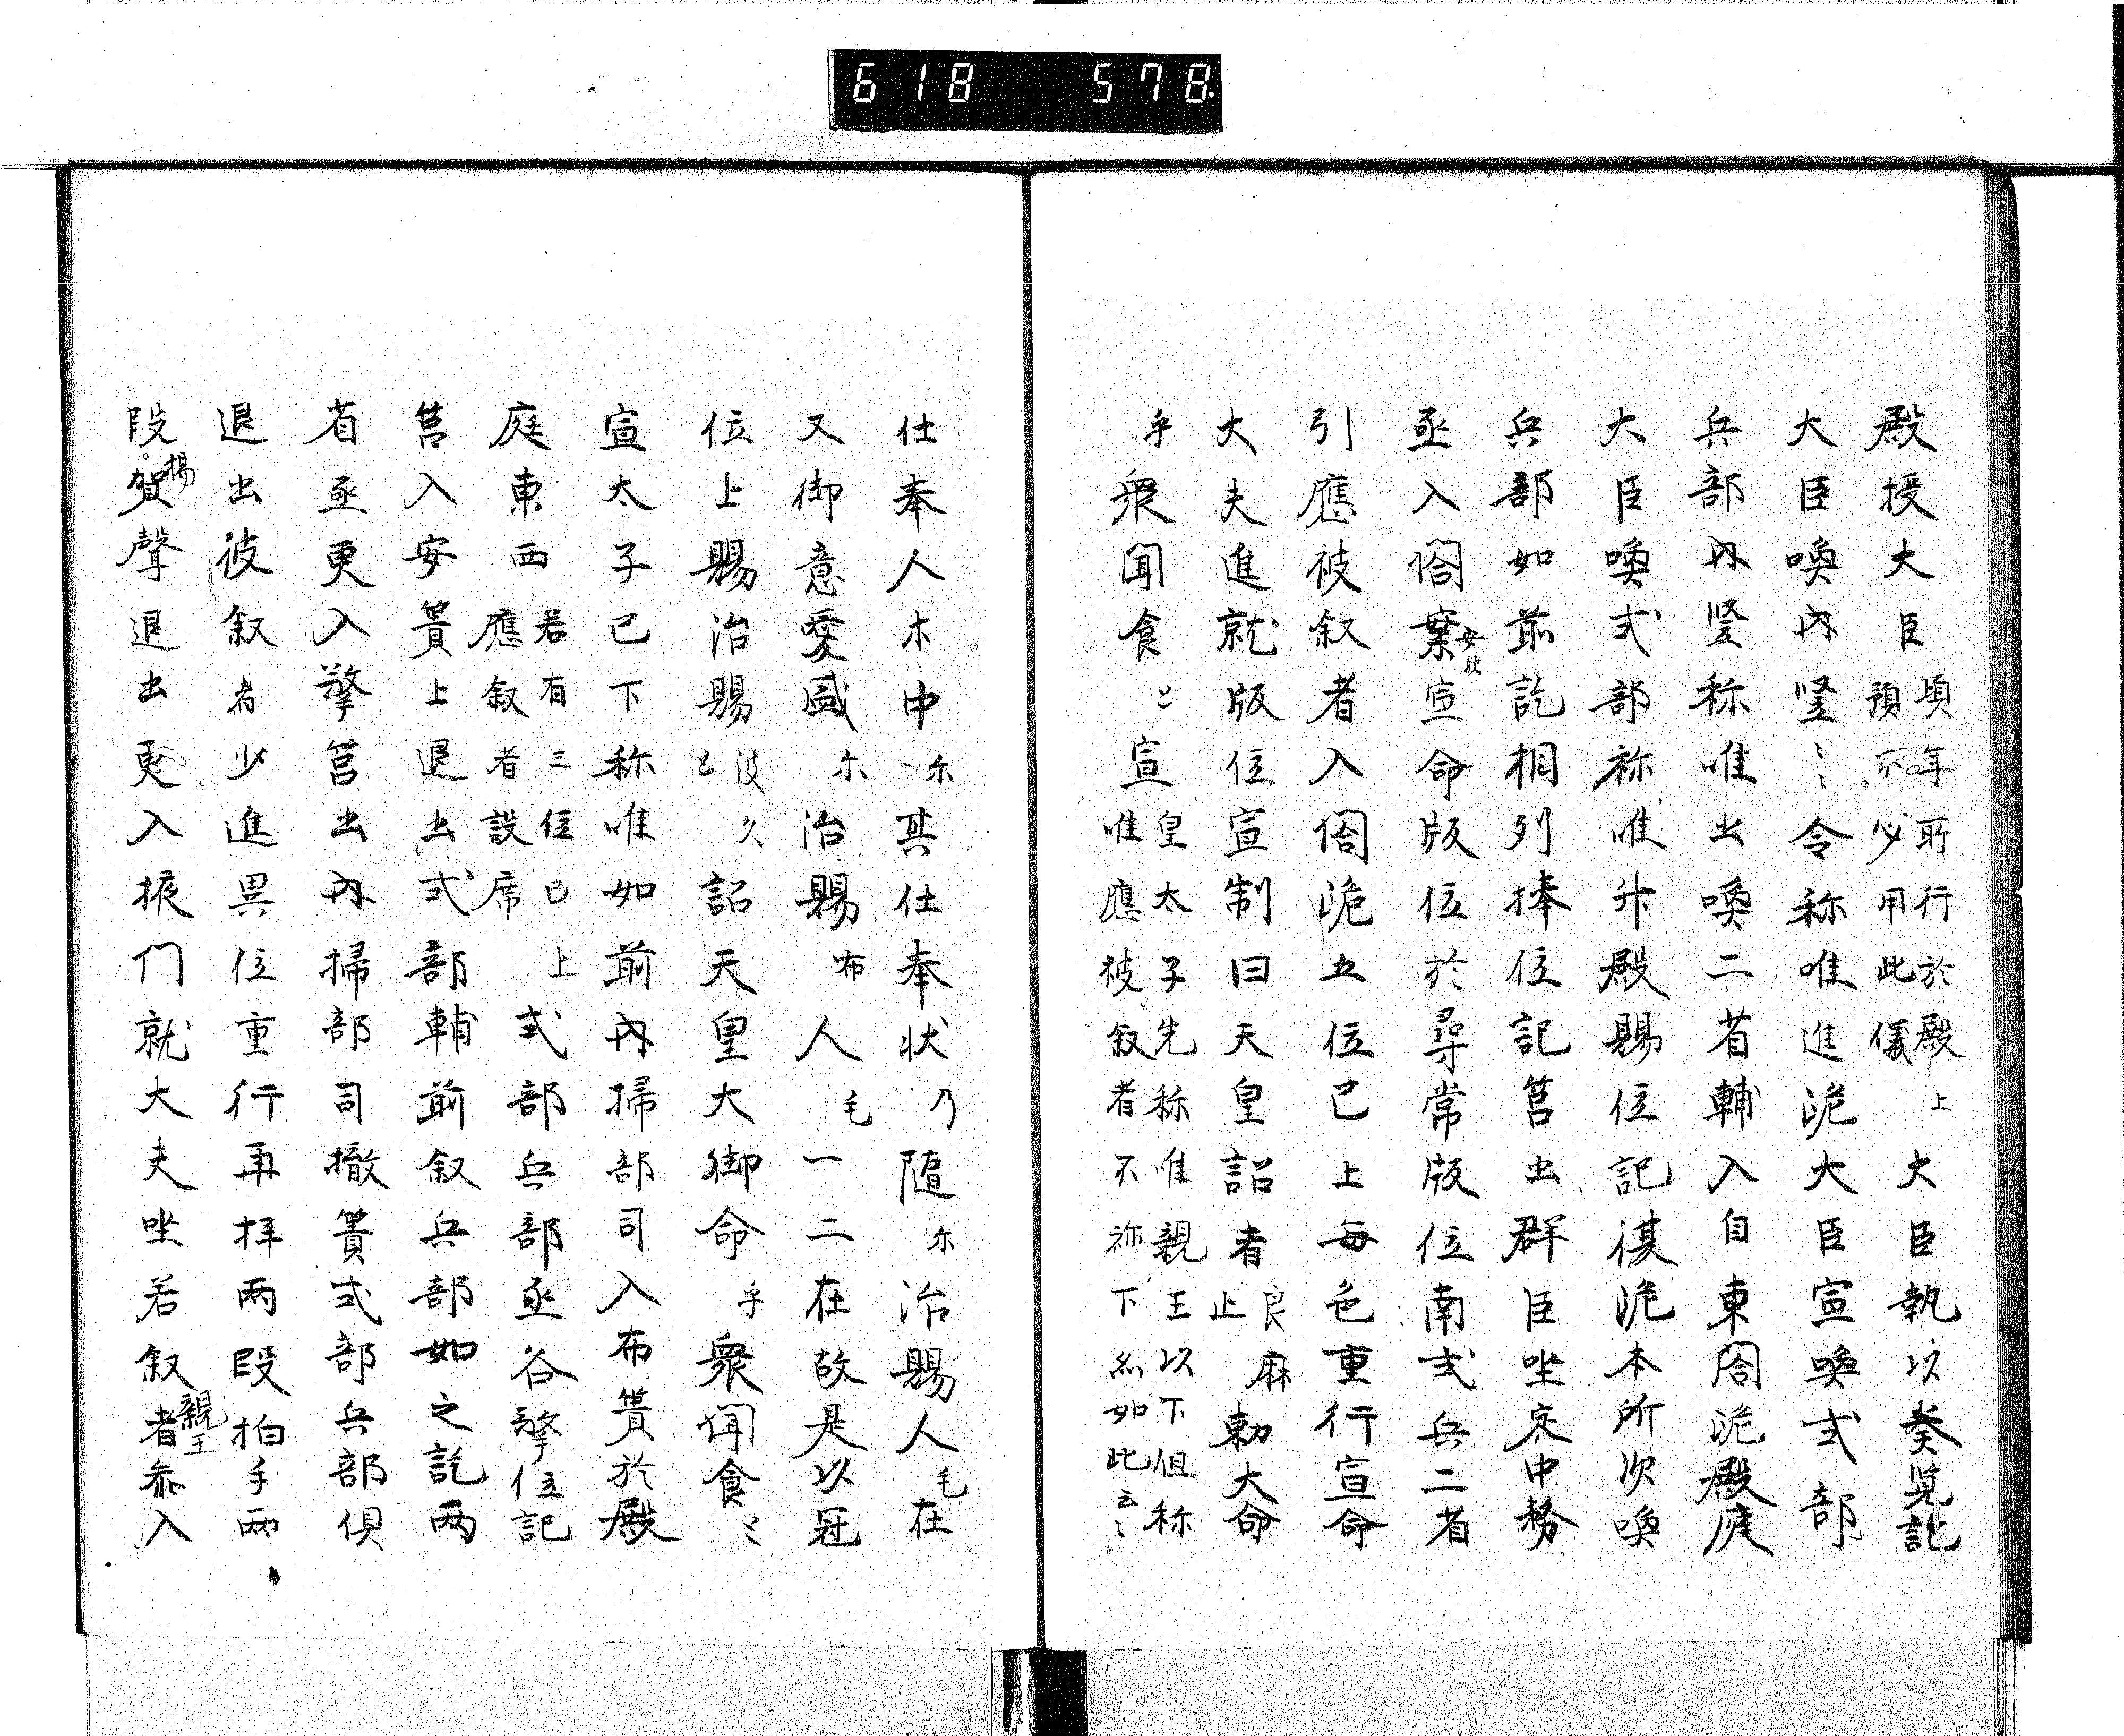 618 578
殿授大臣頃年所行於殿上預不必用此儀大臣執以奏覧訖
大臣喚內竪〻〻令称唯進跪大臣宣喚式部
兵部內竪称唯出喚二省輔入自東閤跪殿庭
大臣喚式部称唯升殿賜位記筥跪本所次喚
兵部如前訖相列捧位記筥出群臣坐定中務
丞入閤案安欤宣命版位於尋常版位南式兵二省
引應被叙者入閤跪五位已上每色重行宣命
大夫進就版位宣制曰天皇詔者良麻止勅大命
乎衆聞食〻宣皇太子先称唯親王以下但称唯應被叙者不称下品如此云〻
仕奉人木中尓其仕奉状乃随尓治賜人毛在
又御意愛盛尓治賜布人毛一二在故是以冠
位上賜治賜波久止詔天皇大御命乎衆聞食〻
宣太子已下称唯如前內掃部司入布簀於殿
庭東西若有三位已上應叙者設席式部兵部丞各擎位記
筥入安簀上退出式部輔前叙兵部如之訖両
省丞更入擎筥出內掃部司撤簀式部兵部倶
退出彼叙者少進異位重行再拝両段拍手両
段揚賀聲退出更入掖門就大夫坐若叙者親王参入